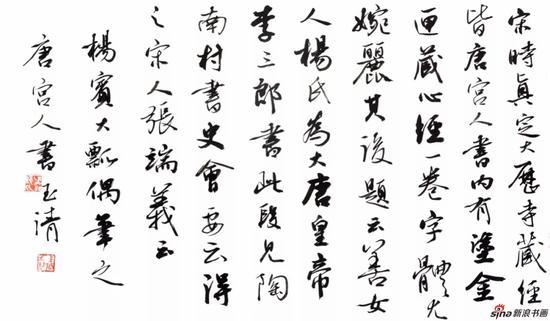 宋時眞定大歷寺藏經
皆唐宮人書內有塗金
匣藏心經一卷字體尤
婉麗其後題云善女
人楊氏為大唐皇帝
李三郎書此段見陶
南村書史會要云得
之宋人張端義云
楊賓大瓢偶筆之
唐宮人書 玉清
sina新浪书画